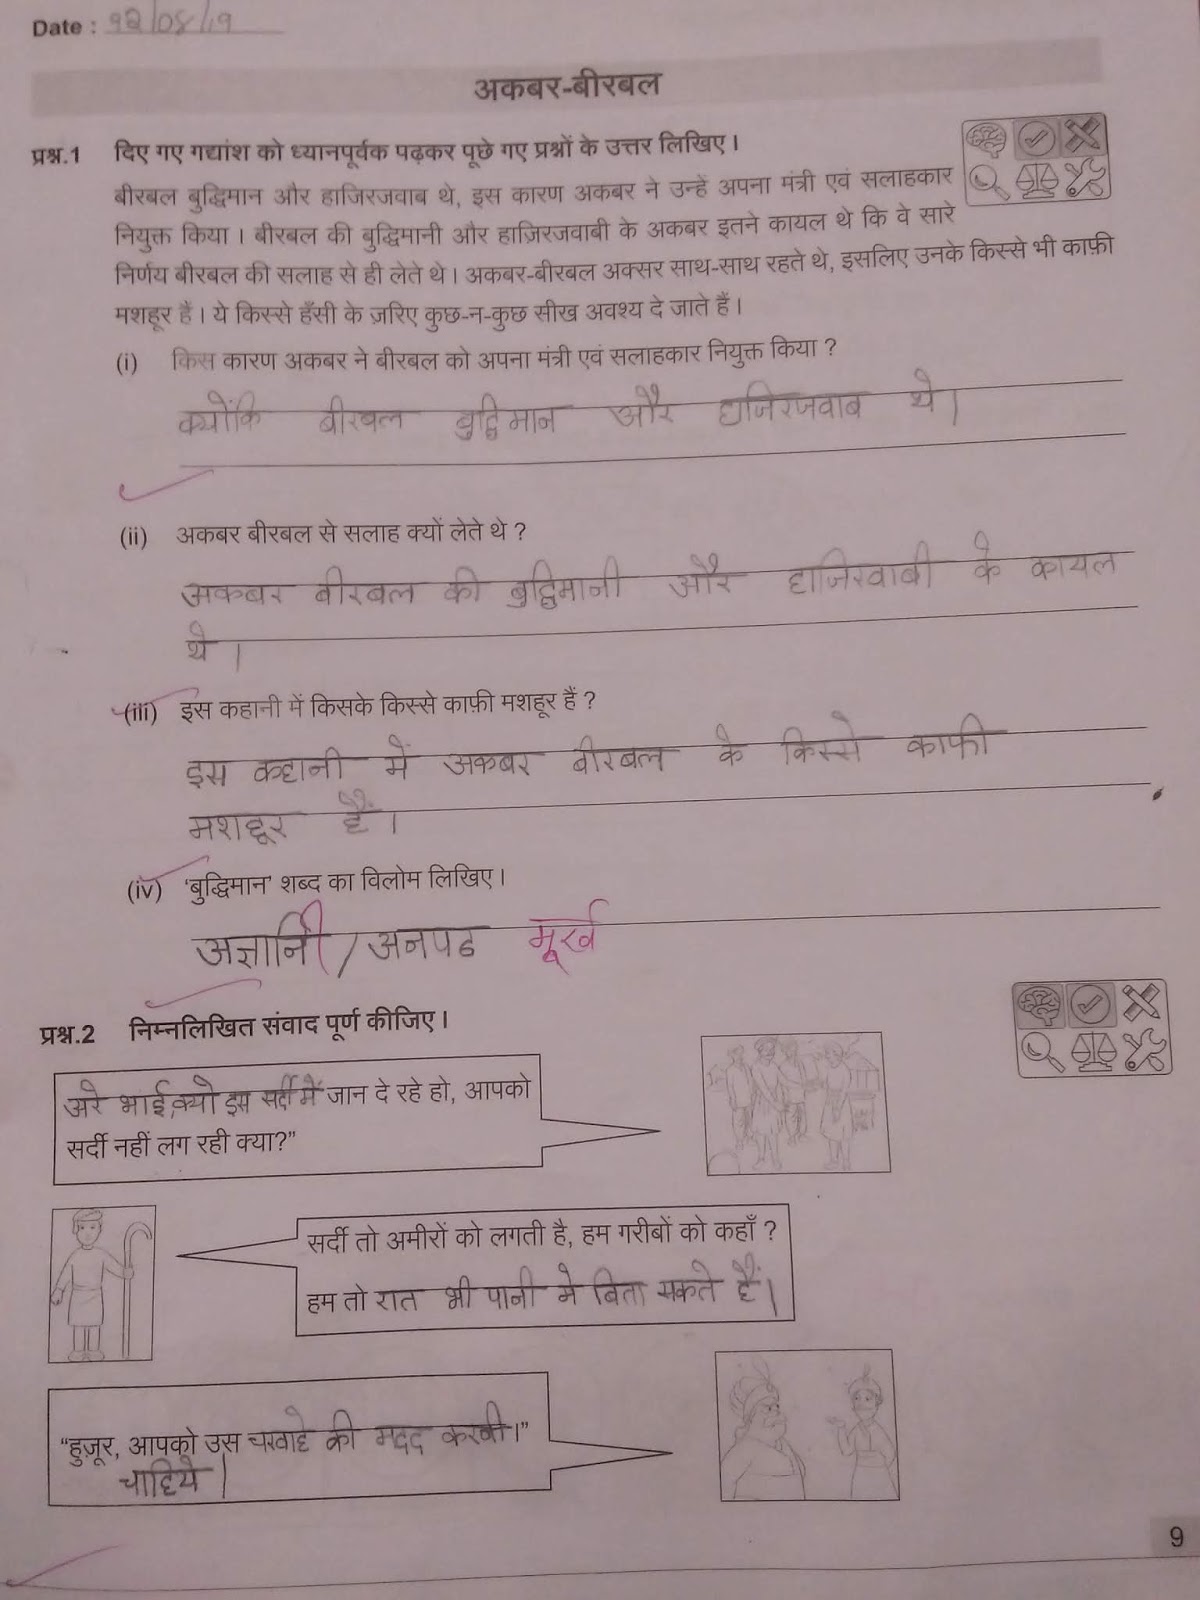 Date : 12/08/19
अकबर-बीरबल
प्रश्न.1 दिए गए गद्यांश को ध्यानपूर्वक पढ़कर पूछे गए प्रश्नों के उत्तर लिखिए।
बीरबल बुद्धिमान और हाजिरजवाब थे, इस कारण अकबर ने उन्हें अपना मंत्री एवं सलाहकार
नियुक्त किया। बीरबल की बुद्धिमानी और हाज़िरजवाबी के अकबर इतने कायल थे कि वे सारे
निर्णय बीरबल की सलाह से ही लेते थे। अकबर-बीरबल अक्सर साथ-साथ रहते थे, इसलिए उनके किस्से भी काफ़ी
मशहूर हैं। ये किस्से हँसी के ज़रिए कुछ-न-कुछ सीख अवश्य दे जाते हैं।
(i) किस कारण अकबर ने बीरबल को अपना मंत्री एवं सलाहकार नियुक्त किया ?
क्योंकि बीरबल बुद्धिमान और हाजिरजवाब थे।
(ii) अकबर बीरबल से सलाह क्यों लेते थे ?
अकबर बीरबल की बुद्धिमानी और हाजिरवाबी के कायल
थे।
(iii) इस कहानी में किसके किस्से काफ़ी मशहूर हैं ?
इस कहानी में अकबर बीरबल के किस्से काफी
मशहूर हैं।
(iv) 'बुद्धिमान' शब्द का विलोम लिखिए।
अज्ञानी / अनपढ मूर्ख
प्रश्न.2 निम्नलिखित संवाद पूर्ण कीजिए।
अरे भाई,क्यो इस सर्दी में जान दे रहे हो, आपको
सर्दी नहीं लग रही क्या?"
सर्दी तो अमीरों को लगती है, हम गरीबों को कहाँ ?
हम तो रात भी पानी मे बिता सकते हैं।
"हुज़ूर, आपको उस चरवाहे की मदद करनी।"
चाहिये।
9